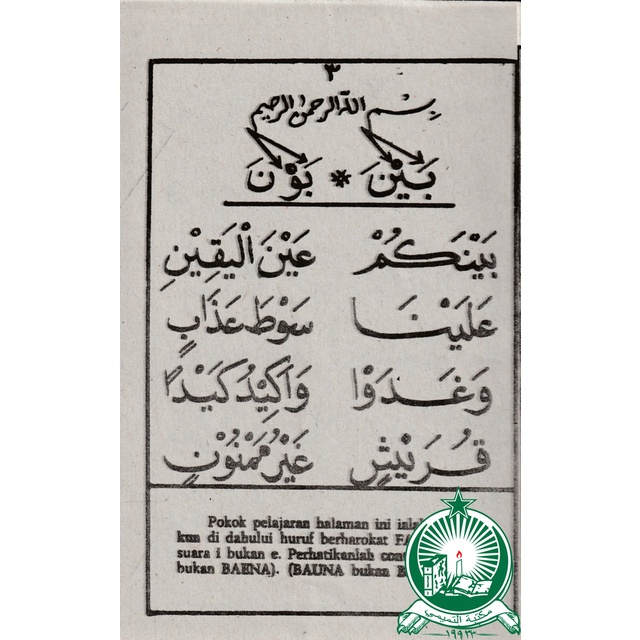 ٣
بِسْمِ اللّٰهِ الرَّحْمٰنِ الرَّحِيْمِ
بَيْنَ * بَوْنَ
بَيْنَكُمْ عَيْنَ الْيَقِيْنِ
عَلَيْنَا سَوْطَ عَذَابٍ
وَغَدَوْا وَاَكِيْدُ كَيْدًا
قُرَيْشٍ غَيْرُ مَمْنُوْنٍ
Pokok pelajaran halaman ini ialah
kun di dahului huruf berharokat
suara i bukan e. Perhatikanlah
bukan BAENA). (BAUNA bukan
مكتبة التميمي
١٩٩٣